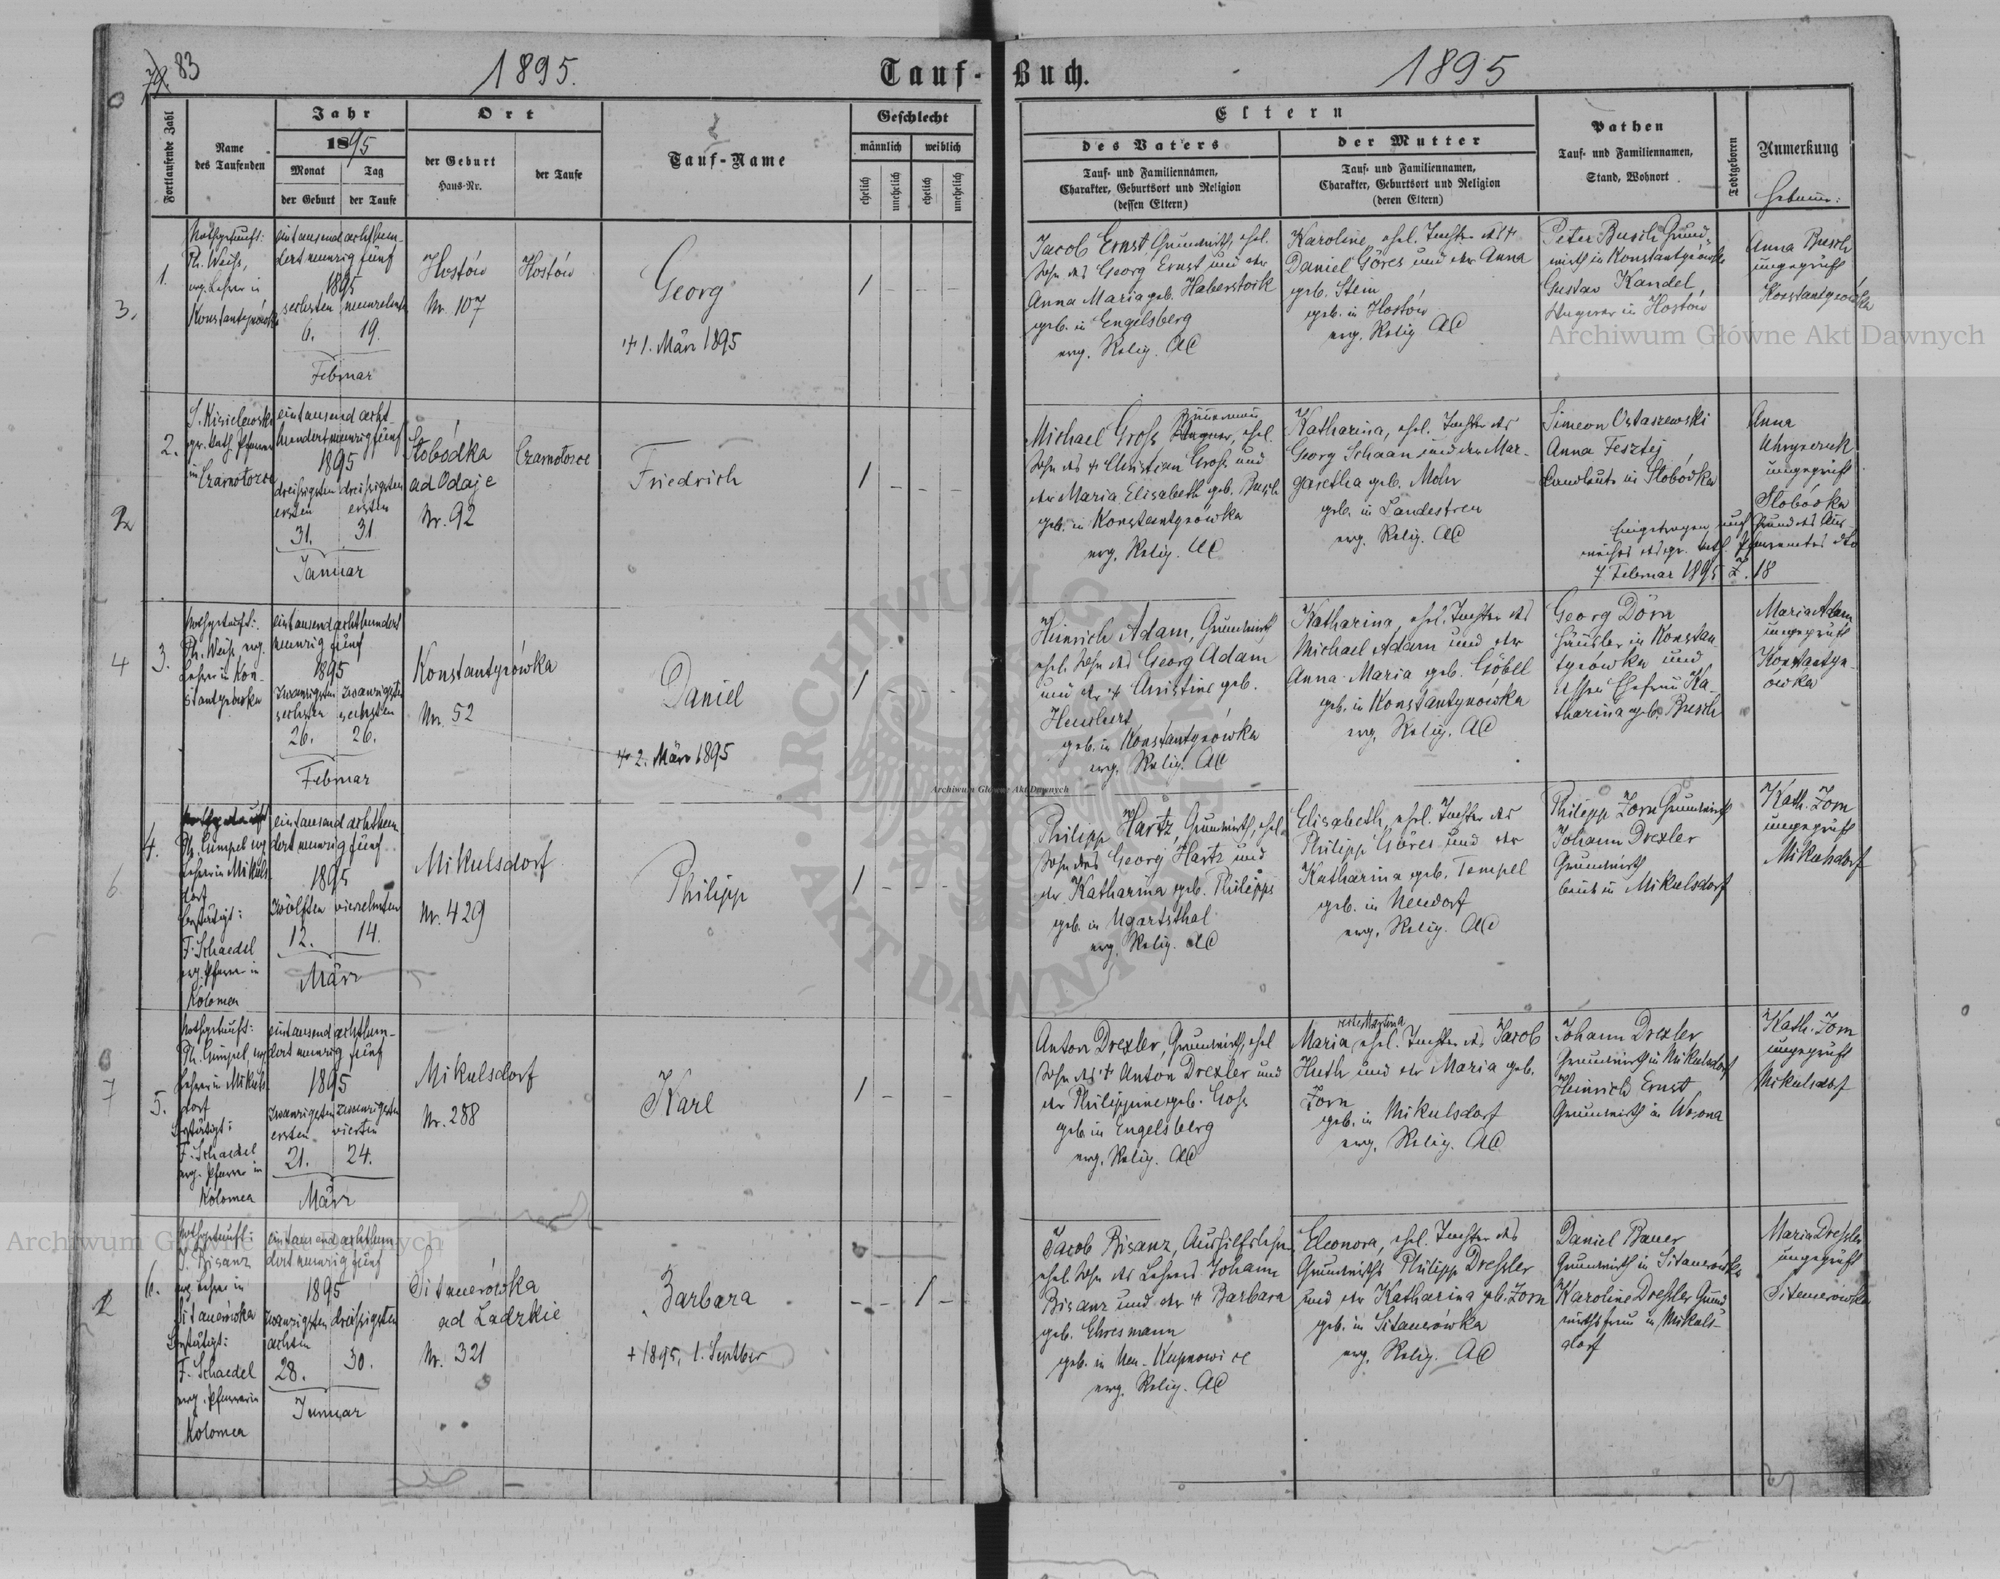 79. 83
1895.
Tauf-Buch.
1895
Fortlaufende Zahl
Name
des Taufenden
Jahr
1895
Monat
der Geburt
Tag
der Taufe
Ort
der Geburt
Haus-Nr.
der Taufe
Tauf-Name
Geschlecht
männlich
weiblich
ehelich
unehelich
ehelich
unehelich
Eltern
des Vaters
Tauf- und Familiennamen,
Charakter, Geburtsort und Religion
(dessen Eltern)
der Mutter
Tauf- und Familiennamen,
Charakter, Geburtsort und Religion
(deren Eltern)
Pathen
Tauf- und Familiennamen,
Stand, Wohnort
Todtgeboren
Anmerkung
3.
1.
Nothgetauft:
Ph. Weiss,
evg. Lehrer in
Konstantynówka
eintausend achthun-
dert neunzig fünf
1895
sechsten neunzehnten
6. 19.
Februar
Hostów
Nr. 107
Hostów
Georg
1. März 1895
1 - - -
Jacob Ernst, Grundwirth, ehel.
Sohn des Georg Ernst und der
Anna Maria geb. Haberstock
geb. in Engelsberg
evg. Relig. AC
Karoline, ehel. Tochter des
Daniel Göres und der Anna
geb. Stem
geb. in Hostów
evg. Relig AC
Peter Busch Grund-
wirth in Konstantynówka
Gustav Kandel,
in Hostów
Anna Busch
ungeprüft
Konstantynówka
2.
gr. kath. Pfarrer
in Czarnołozce
eintausend acht
hundert neunzig fünf
1895
dreissigsten dreissigsten
ersten ersten
31. 31
Januar
Słobódka
ad Odaje
Nr. 92
Czarnołozce
Friedrich
1 - - -
Michael Gross, ehel.
Sohn des Christian Gross und
der Maria Elisabeth geb. Busch
geb. in Konstantynówka
evg. Relig. AC
Katharina, ehel. Tochter des
Georg Schaan und der Mar-
garetha geb. Mohr
geb. in Landestreu
evg. Relig. AC
Simeon Ostaszewski
Anna Fesztej
Landleute in Słobódka
Anna
ungeprüft
Słobódka
Eingetragen auf Grund des Aus-
weises des gr. kath. Pfarramtes dto
7 Februar 1895 Z. 18
4
3.
Nothgetauft:
Ph. Weiss evg.
Lehrer in Kon-
stantynówka
eintausend achthundert
neunzig fünf
1895
zwanzigsten zwanzigsten
sechsten sechsten
26. 26.
Februar
Konstantynówka
Nr. 52
Daniel
2. März 1895
1 - - -
Heinrich Adam, Grundwirth
ehel. Sohn des Georg Adam
und der Christine geb.
geb. in Konstantynówka
evg. Relig. AC
Katharina, ehel. Tochter des
Michael Adam und der
Anna Maria geb. Göbel
geb. in Konstantynówka
evg. Relig. AC
Georg Dörn
Häusler in Konstan-
tynówka und
dessen Ehefrau Ka-
tharina geb. Busch
Maria Adam
ungeprüft
Konstantyn-
ówka
6.
4.
Ph. Gümpel evg
Lehrer in Mikuls-
dorf
bestätigt:
F. Schaedel
evg. Pfarrer in
Kolomea
eintausend achthun
dert neunzig fünf
1895
zwölften vierzehnten
12. 14.
März
Mikulsdorf
Nr. 429
Philipp
1 - - -
Philipp Hartz, Grundwirth, ehel.
Sohn des Georg Hartz und
der Katharina geb. Philipps
geb. in Ugartsthal
evg. Relig. AC
Elisabeth, ehel. Tochter des
Philipp Göres und der
Katharina geb. Tempel
geb. in Neudorf
evg. Relig. AC
Philipp Zorn Grundwirth
Johann Drexler
Grundwirth
beide in Mikulsdorf
Kath. Zorn
ungeprüft
Mikulsdorf
7
5.
Nothgetauft:
Ph. Gümpel, evg
Lehrer in Mikuls-
dorf
bestätigt:
F. Schaedel
evg. Pfarrer in
Kolomea
eintausend achthun-
dert neunzig fünf
1895
zwanzigsten zwanzigsten
ersten vierten
21. 24.
März
Mikulsdorf
Nr. 288
Karl
1 - -
Anton Drexler, Grundwirth, ehel
Sohn des Anton Drexler und
der Philippine geb. Gross
geb. in Engelsberg
evg. Relig. AC
recte Martina
Maria, ehel. Tochter des Jacob
Huth und der Maria geb.
Zorn
geb. in Mikulsdorf
evg. Relig. AC
Johann Drexler
Grundwirth in Mikulsdorf
Heinrich Ernst
Grundwirth in Worona
Kath. Zorn
ungeprüft
Mikulsdorf
6.
Nothgetauft:
J. Bisanz
evg. Lehrer in
Sitauerówka
bestätigt:
F. Schaedel
evg. Pfarrer in
Kolomea
eintausend achthun
dert neunzig fünf
1895
zwanzigsten dreissigsten
achten
28. 30.
Januar
Sitauerówka
ad Ladzkie
Nr. 321
Barbara
+ 1895, 1. Septber
- - 1 -
Jacob Bisanz, Aushilfslehr.
ehel. Sohn des Lehrers Johann
Bisanz und der Barbara
geb. Ehresmann
geb. in Neu-Kupnowice
evg. Relig. AC
Eleonora, ehel. Tochter des
Grundwirths Philipp Dressler
und der Katharina geb. Zorn
geb. in Sitauerówka
evg. Relig. AC
Daniel Bauer
Grundwirth in Sitauerówka
Karoline Dressler Grund
wirthsfrau in Mikuls-
dorf
Maria Dressler
ungeprüft
Sitauerowka
Archiwum Główne Akt Dawnych
Archiwum Główne Akt Dawnych
Archiwum Główne Akt Dawnych